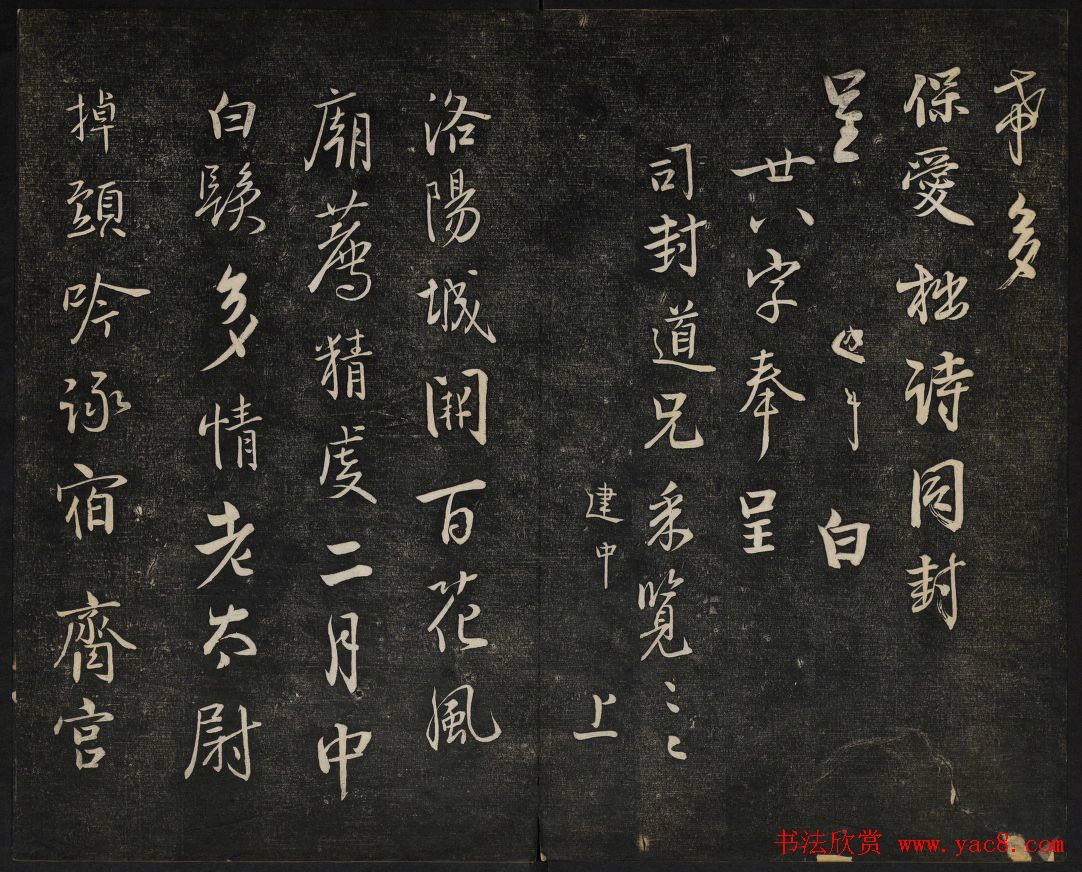 希多
保愛拙詩同封
呈 建中 白
廿八字奉呈
司封道兄采覽
建中 上
洛陽城開百花風
廟薦精虔二月中
白髮多情老太尉
掉頭吟詠宿齋宮
书法欣赏 www.yac8.com